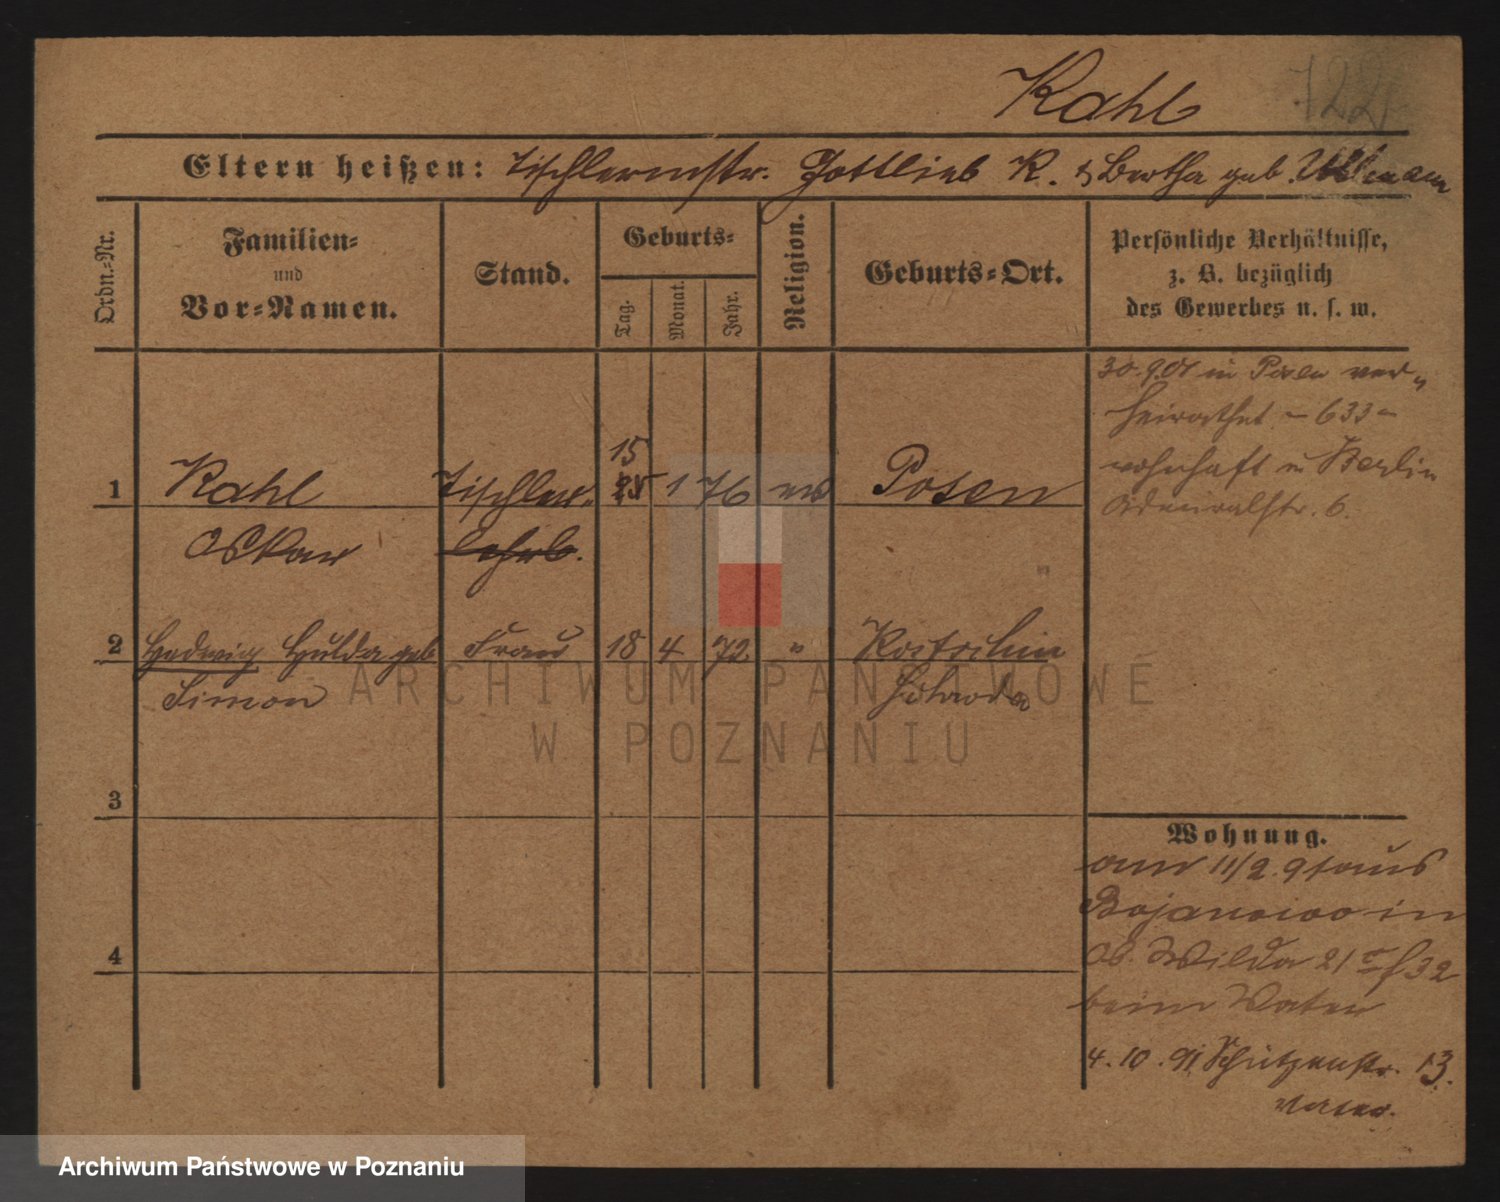 Kahl 122
Eltern heißen: Tischlermstr. Gottlieb K. & Bertha geb. Ullmann
Ordn.-Nr.
Familien-
und
Vor-Namen.
Stand.
Geburts-
Tag.
Monat.
Jahr.
Religion.
Geburts-Ort.
Persönliche Verhältnisse,
z. B. bezüglich
des Gewerbes u. s. w.
30.9.01 in Posen ver-
heirathet - 633 -
wohnhaft in Berlin
Admiralstr. 6.
15
1 Kahl Tischler- 25 1 76 ev Posen
Oskar lehrl.
2 Hedwig Hulda geb Frau 18 4 72 "
Simon
3
4
Wohnung.
am 11/2. 91 aus
Bojanowo in
Ob. Wilda 21 32
beim Vater
4.10.91 Schützenstr. 13.
Vater.
ARCHIWUM PAŃSTWOWE
W POZNANIU
Archiwum Państwowe w Poznaniu